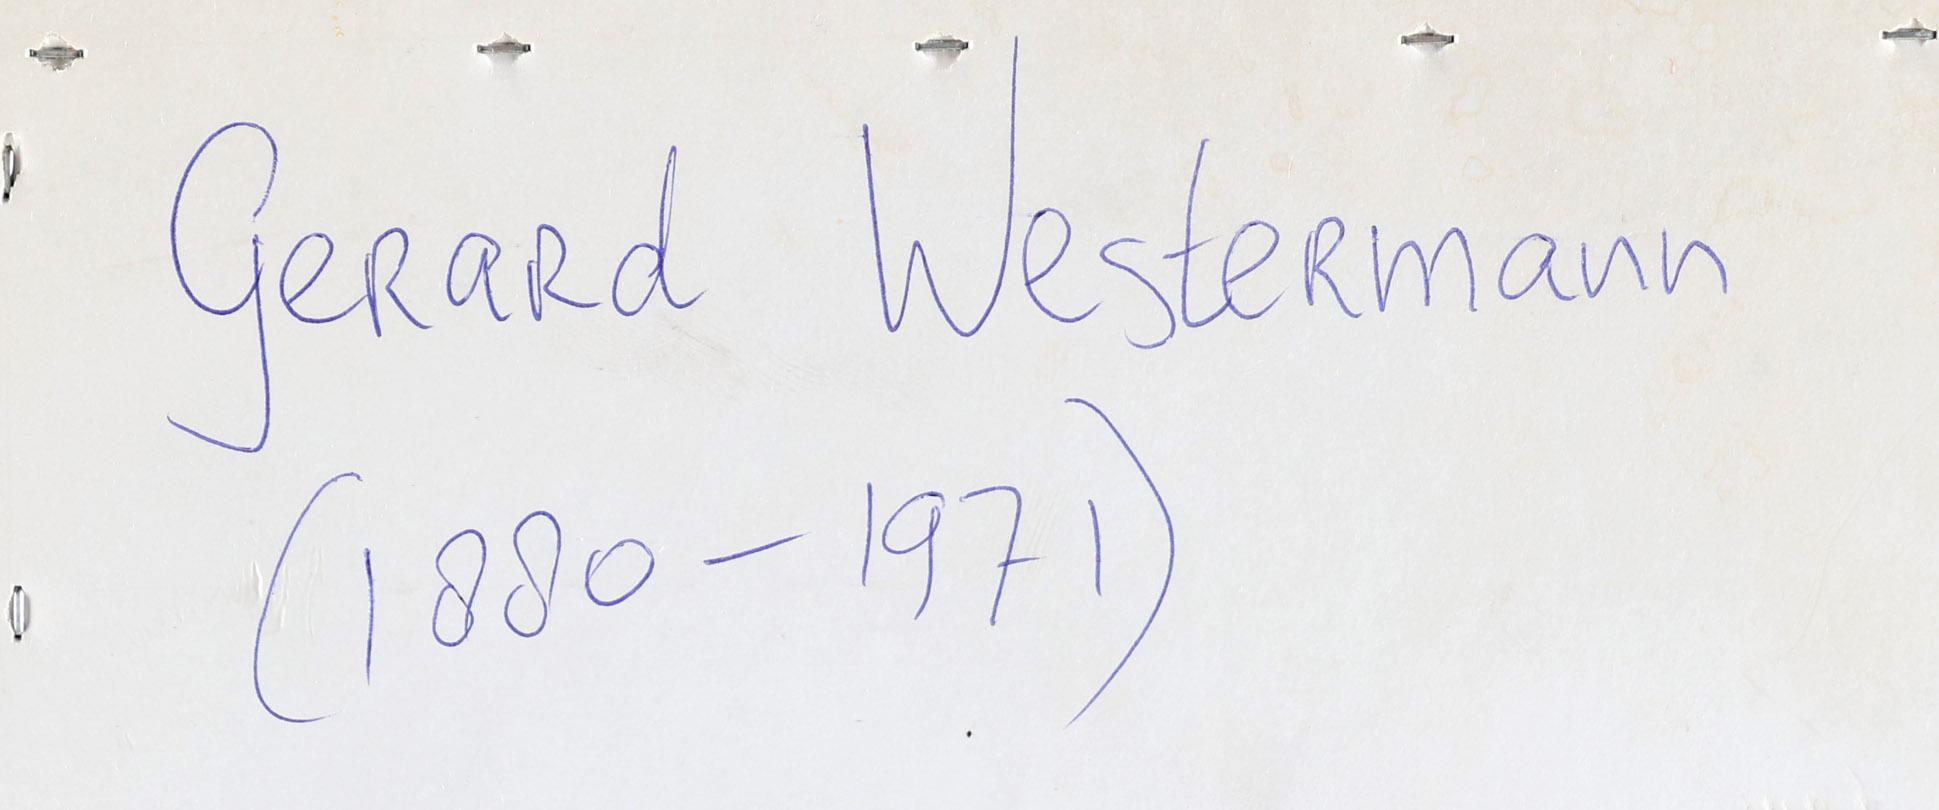 Gerard Westermann
(1880-1971)